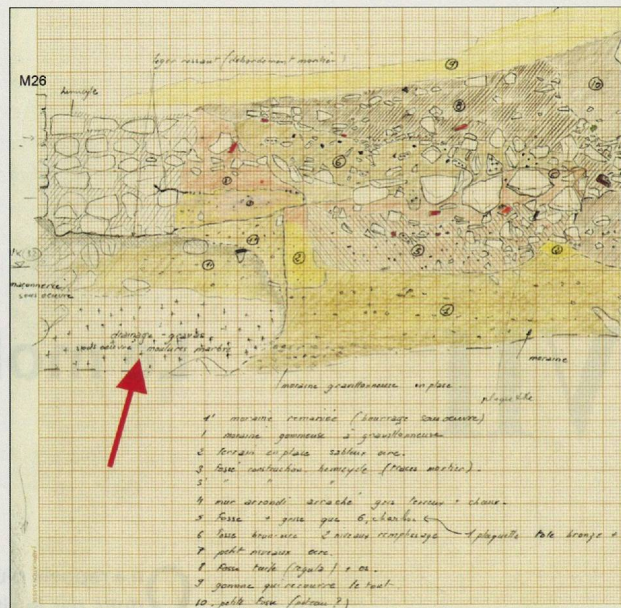 leger ressaut (débordement mortier)
M26
hémicycle
maçonnerie
sous œuvre
drainage
sous œuvre
moraine
moraine granttonneuse en place
1' moraine remaniée (bourrage sous œuvre)
1 moraine gommeuse à granttonneuse
2 Terrain en place sableux ocre.
3 Fosse construction hémicycle (traces mortier).
3' " " "
4 mur arrondi arraché gris terreux + chaux.
5 Fosse + grise que 6, charbon
6 Fosse 2 niveaux remplissage 1 plaquette tôle bronze +
7 petit niveau ocre.
8 Fosse (tegula) + os.
9 gomme qui recouvre le tout
10 petite fosse